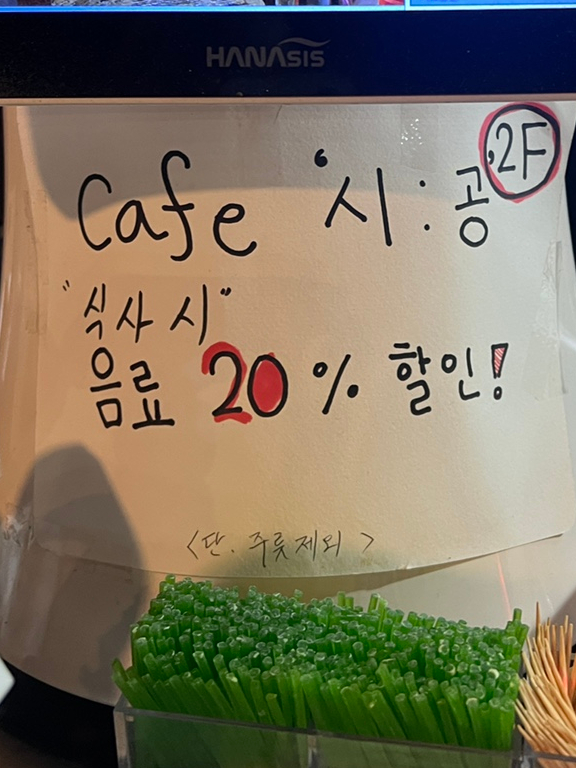 HANASIS
Cafe '시:공' 2F
"식사 시"
음료 20% 할인!
<단. 주류제외>